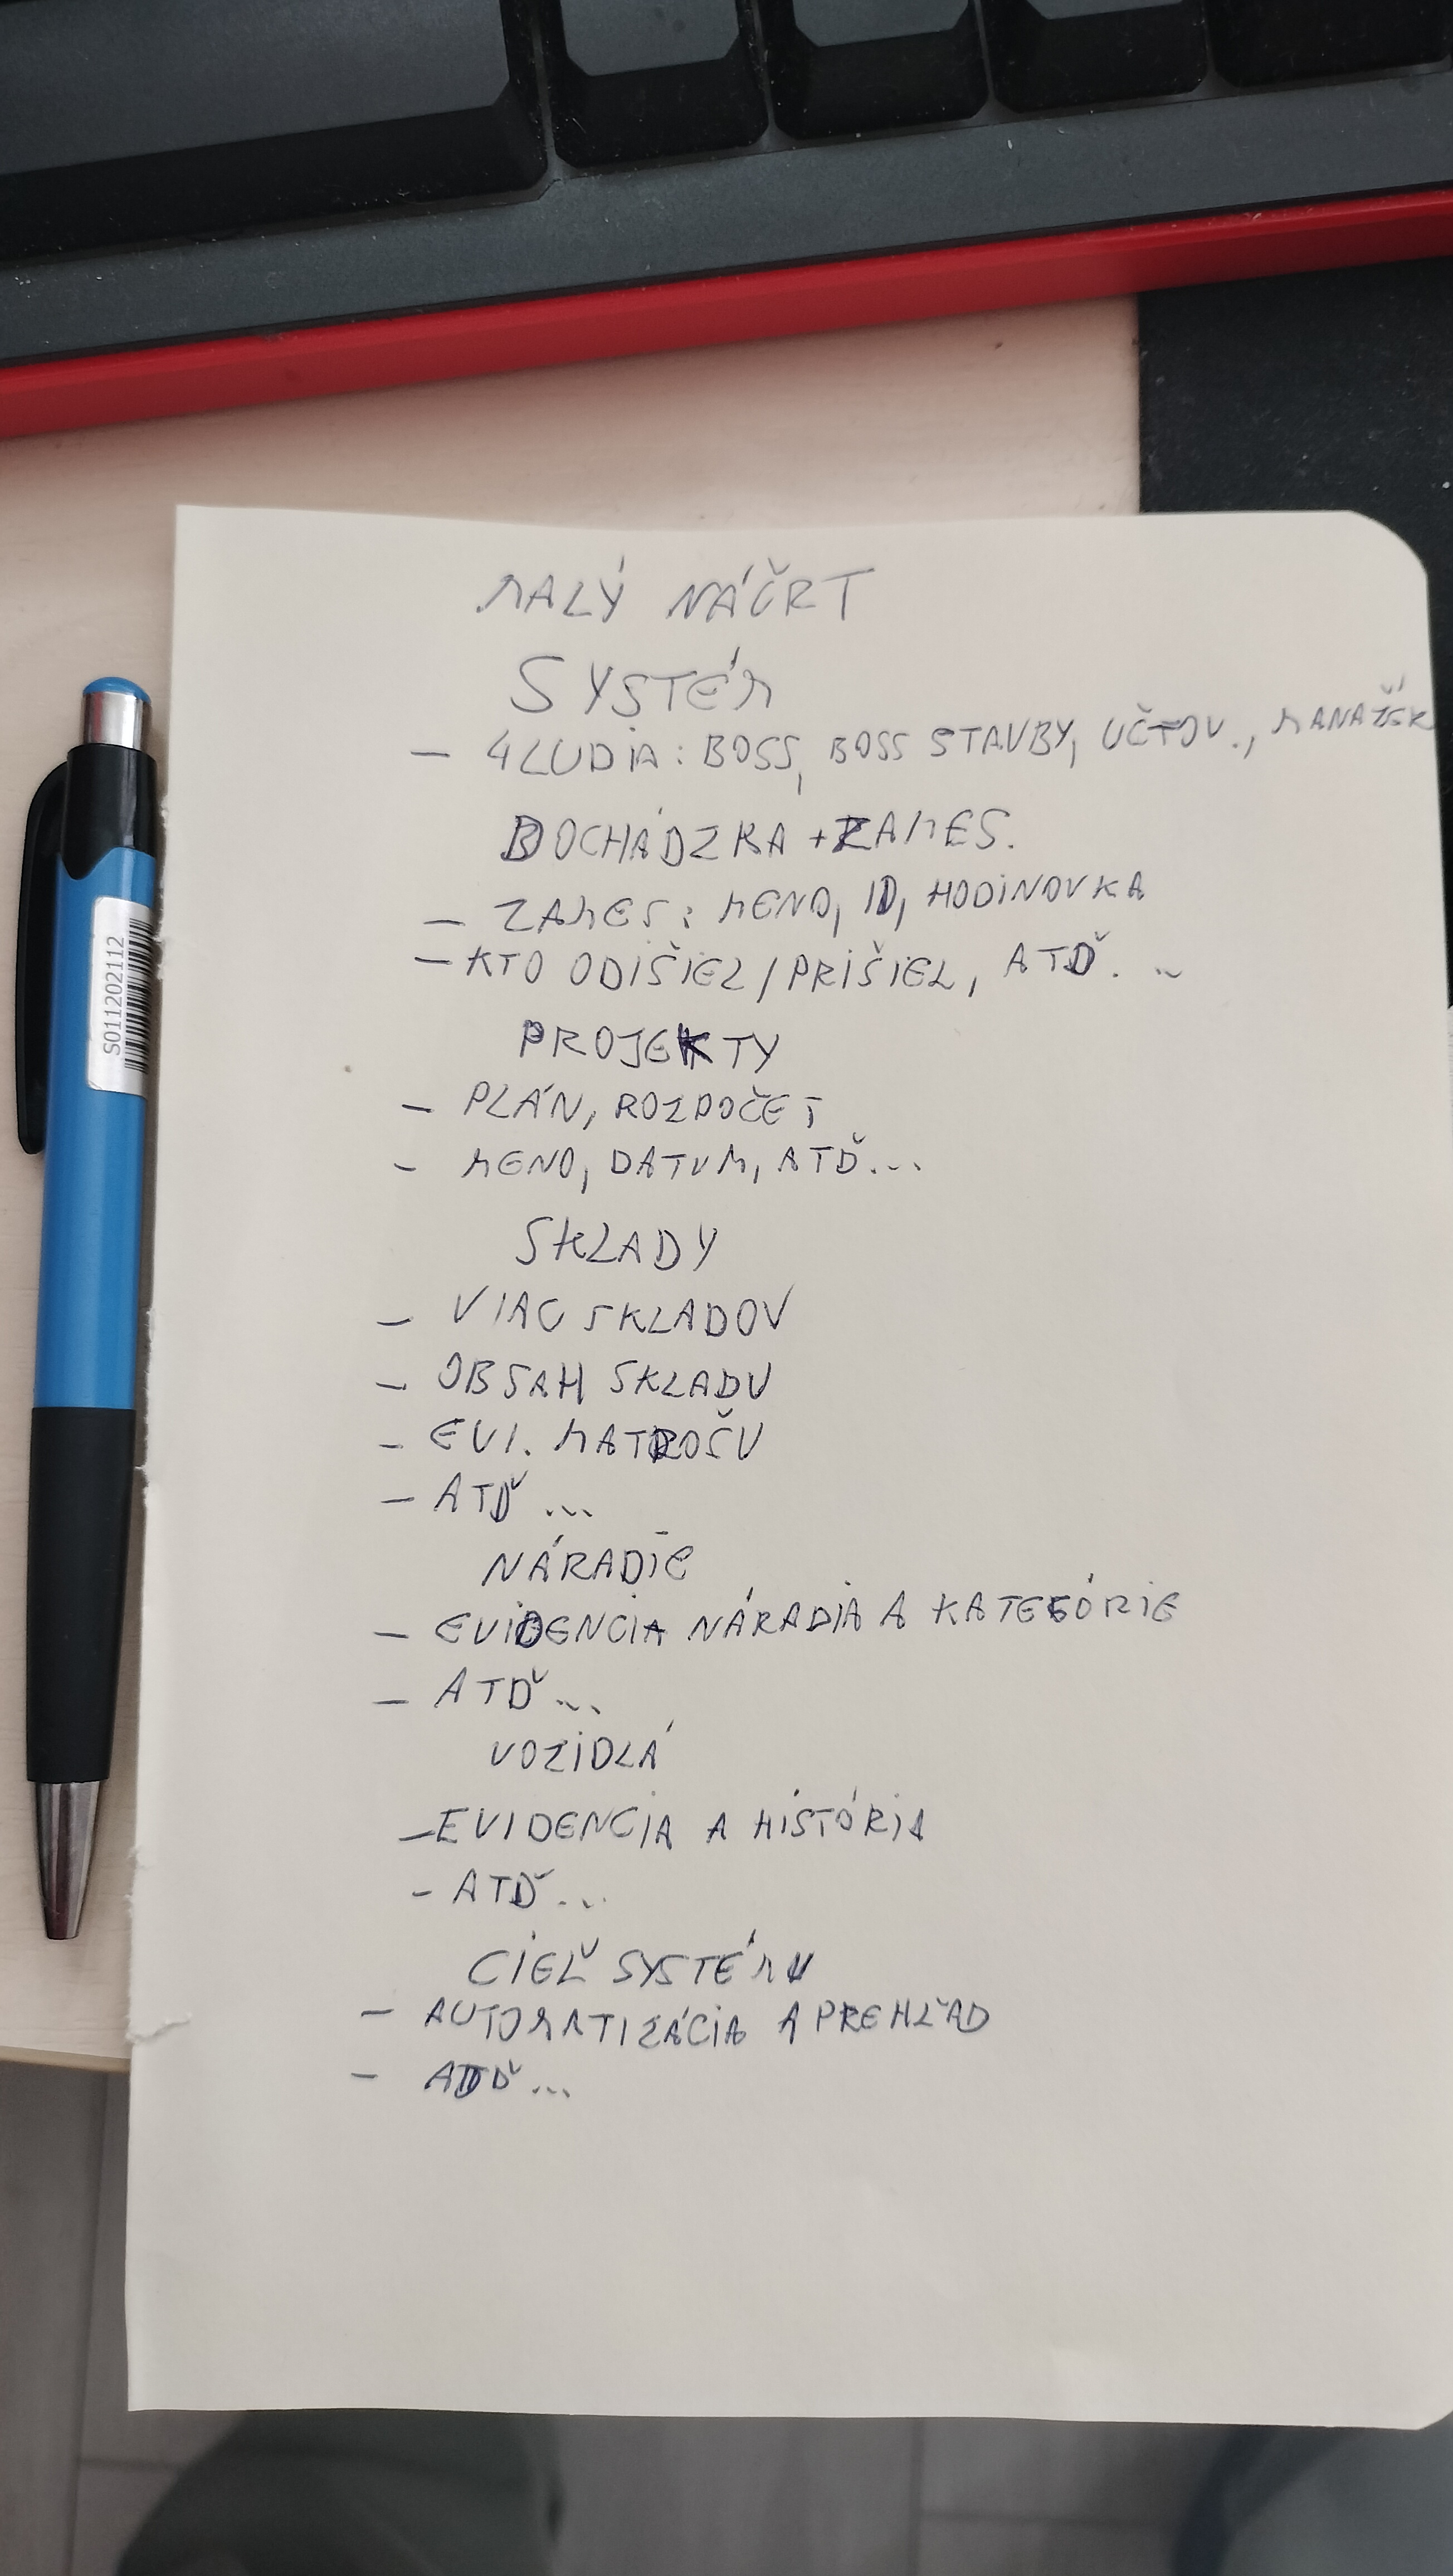 MALÝ NÁČRT
SYSTÉM
- 4 LUDIA: BOSS, BOSS STAVBY, UČTOV., MANAŽÉR
DOCHÁDZKA + ZAMES.
- ZAMES: MENO, ID, HODINOVKA
- KTO ODIŠIEL/PRIŠIEL, ATĎ...
PROJEKTY
- PLÁN, ROZPOČET
- MENO, DATUM, ATĎ...
SKLADY
- VIAC SKLADOV
- OBSAH SKLADU
- EVI. MATROŠU
- ATĎ...
NÁRADIE
- EVIDENCIA NÁRADIA A KATEGÓRIE
- ATĎ...
VOZIDLÁ
- EVIDENCIA A HISTÓRIA
- ATĎ...
CIEĽ SYSTÉMU
- AUTOMATIZÁCIA A PREHĽAD
- ATĎ...
S011202112